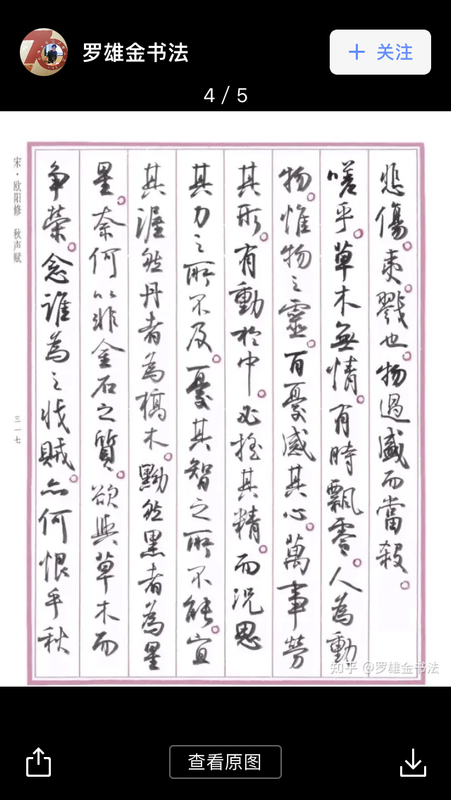 罗雄金书法
+ 关注
4 / 5
悲傷。夷。戮也。物過盛而當殺。
嗟乎。草木無情。有時飄零。人為動
物。惟物之靈。百憂感其心。萬事勞
其形。有動於中。必搖其精。而況思
其力之所不及。憂其智之所不能。宜
其渥然丹者為槁木。黟然黑者為星
星。奈何以非金石之質。欲與草木而
争榮。念誰為之戕賊。亦何恨乎秋
宋·欧阳修 秋声赋
三一七
知乎 @罗雄金书法
查看原图